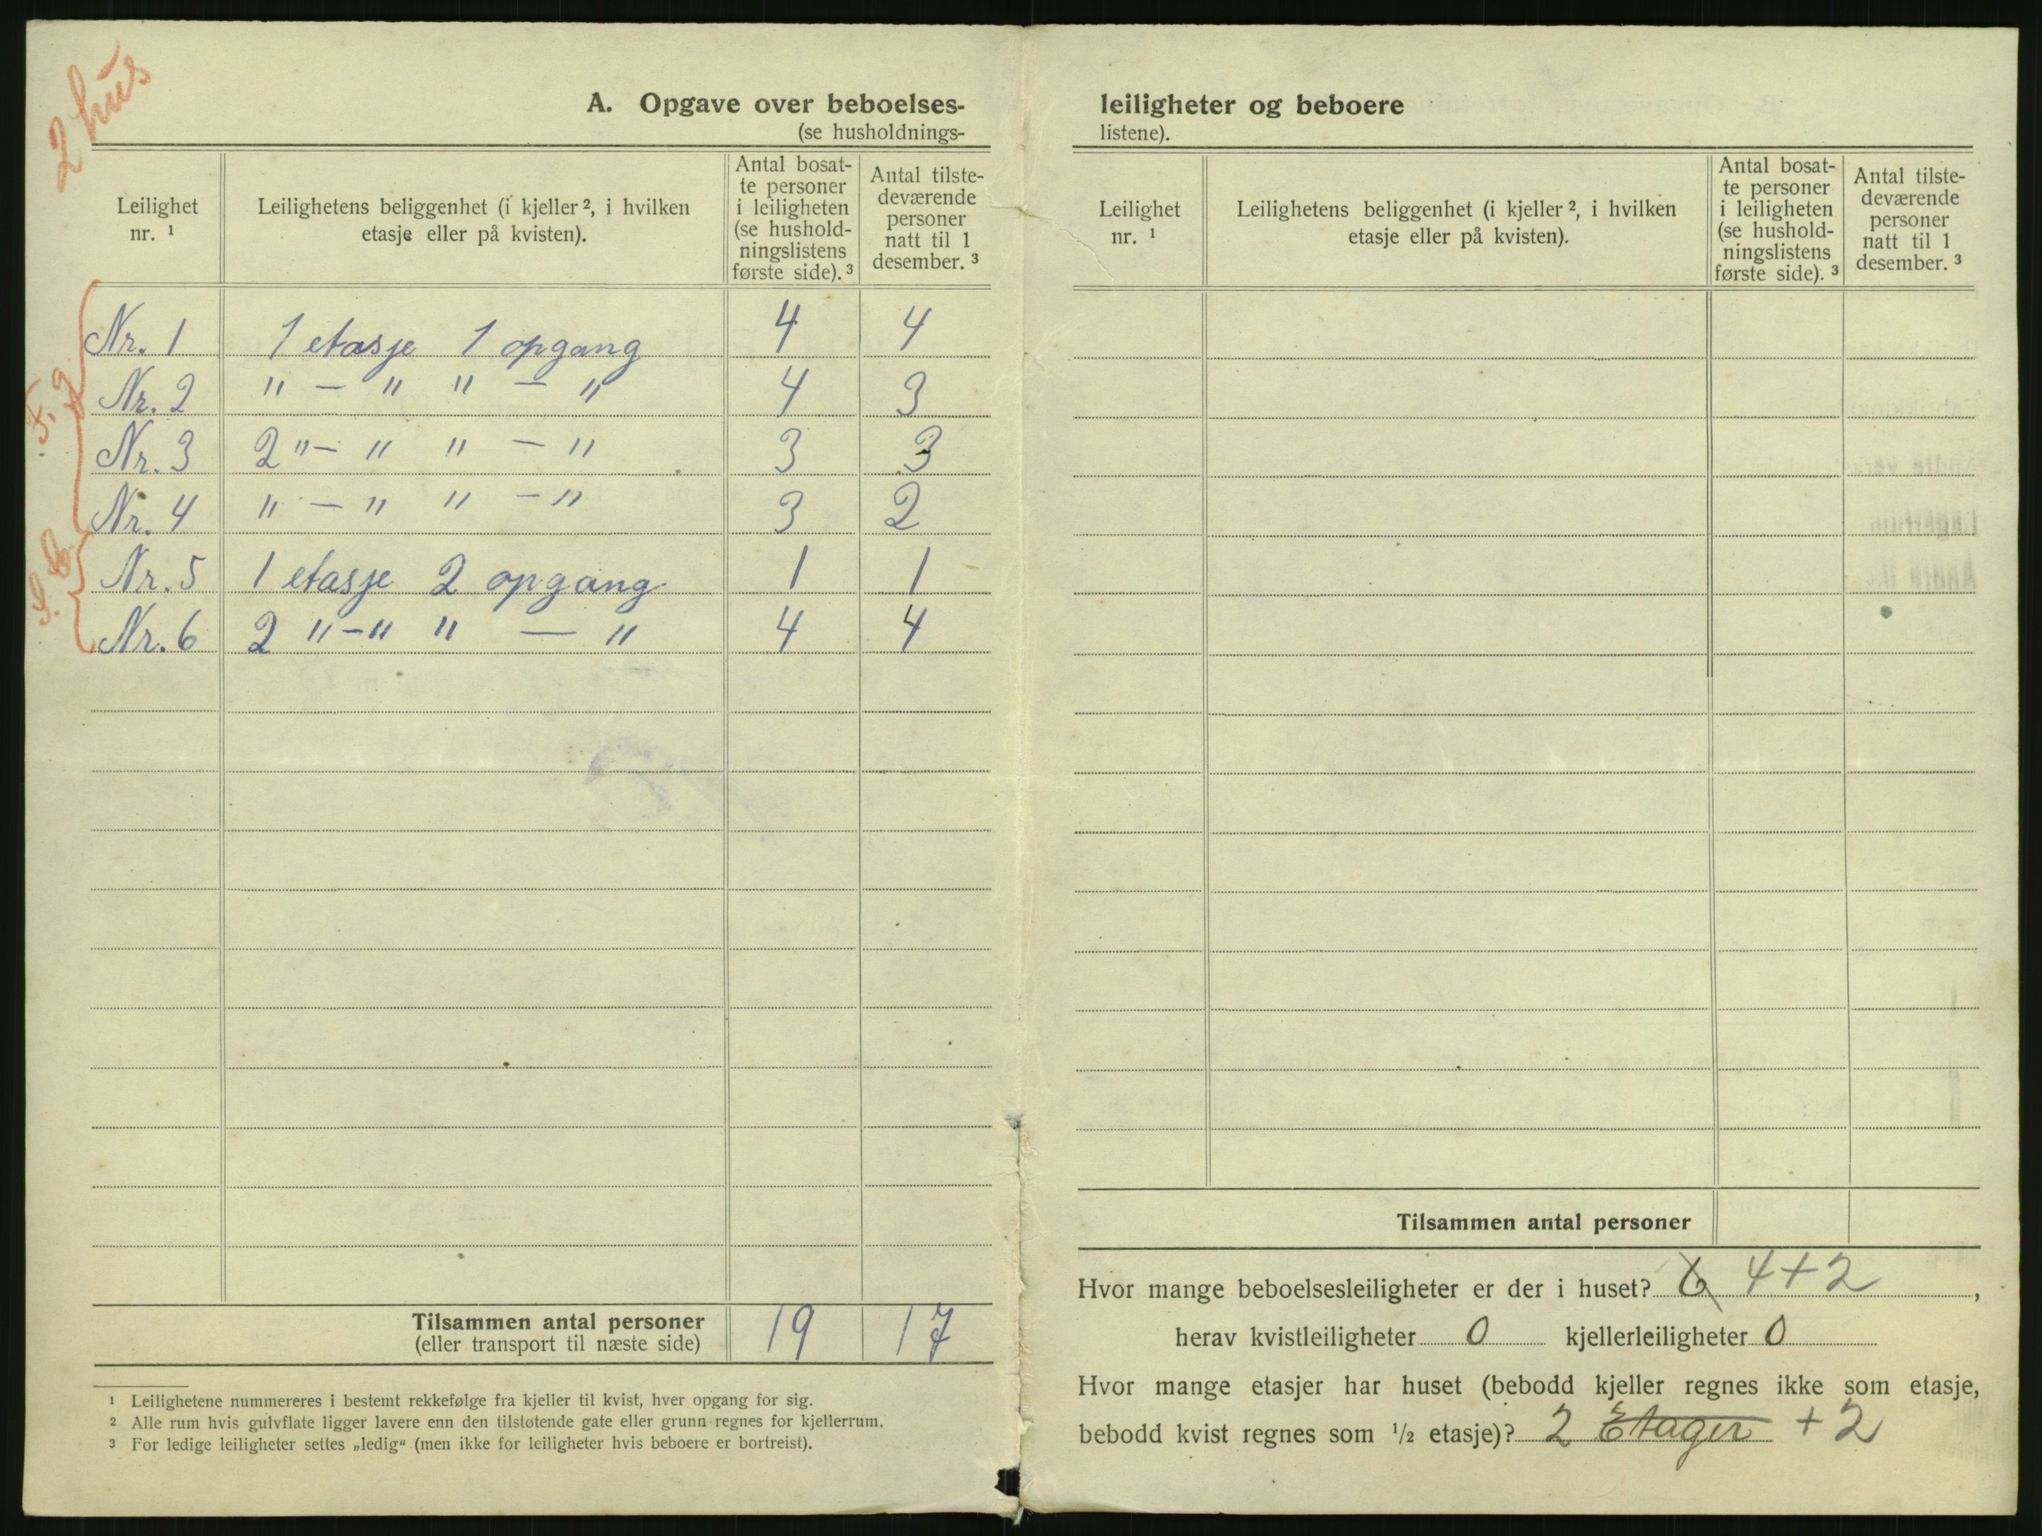 2 hus
A. Opgave over beboelses-
(se husholdnings-
Leilighet nr. ¹
Leilighetens beliggenhet (i kjeller ², i hvilken etasje eller på kvisten).
Antal bosat-te personer i leiligheten (se hushold-ningslistens første side). ³
Antal tilste-deværende personer natt til 1 desember. ³
Nr. 1 1 etasje 1 opgang 4 4
Nr. 2 " — " " — " 4 3
Nr. 3 2 " — " " — " 3 3
Nr. 4 " — " " — " 3 2
Nr. 5 1 etasje 2 opgang 1 1
Nr. 6 2 " — " " — " 4 4
F. g.
Tilsammen antal personer 19 17
(eller transport til næste side)
¹ Leilighetene nummereres i bestemt rekkefølge fra kjeller til kvist, hver opgang for sig.
² Alle rum hvis gulvflate ligger lavere enn den tilstøtende gate eller grunn regnes for kjellerrum.
³ For ledige leiligheter settes „ledig“ (men ikke for leiligheter hvis beboere er bortreist).
leiligheter og beboere
listene).
Leilighet nr. ¹
Leilighetens beliggenhet (i kjeller ², i hvilken etasje eller på kvisten).
Antal bosat-te personer i leiligheten (se hushold-ningslistens første side). ³
Antal tilste-deværende personer natt til 1 desember. ³
Tilsammen antal personer
Hvor mange beboelsesleiligheter er der i huset? 6 4+2 ,
herav kvistleiligheter 0 kjellerleiligheter 0
Hvor mange etasjer har huset (bebodd kjeller regnes ikke som etasje,
bebodd kvist regnes som ½ etasje)? 2 Etager + 2